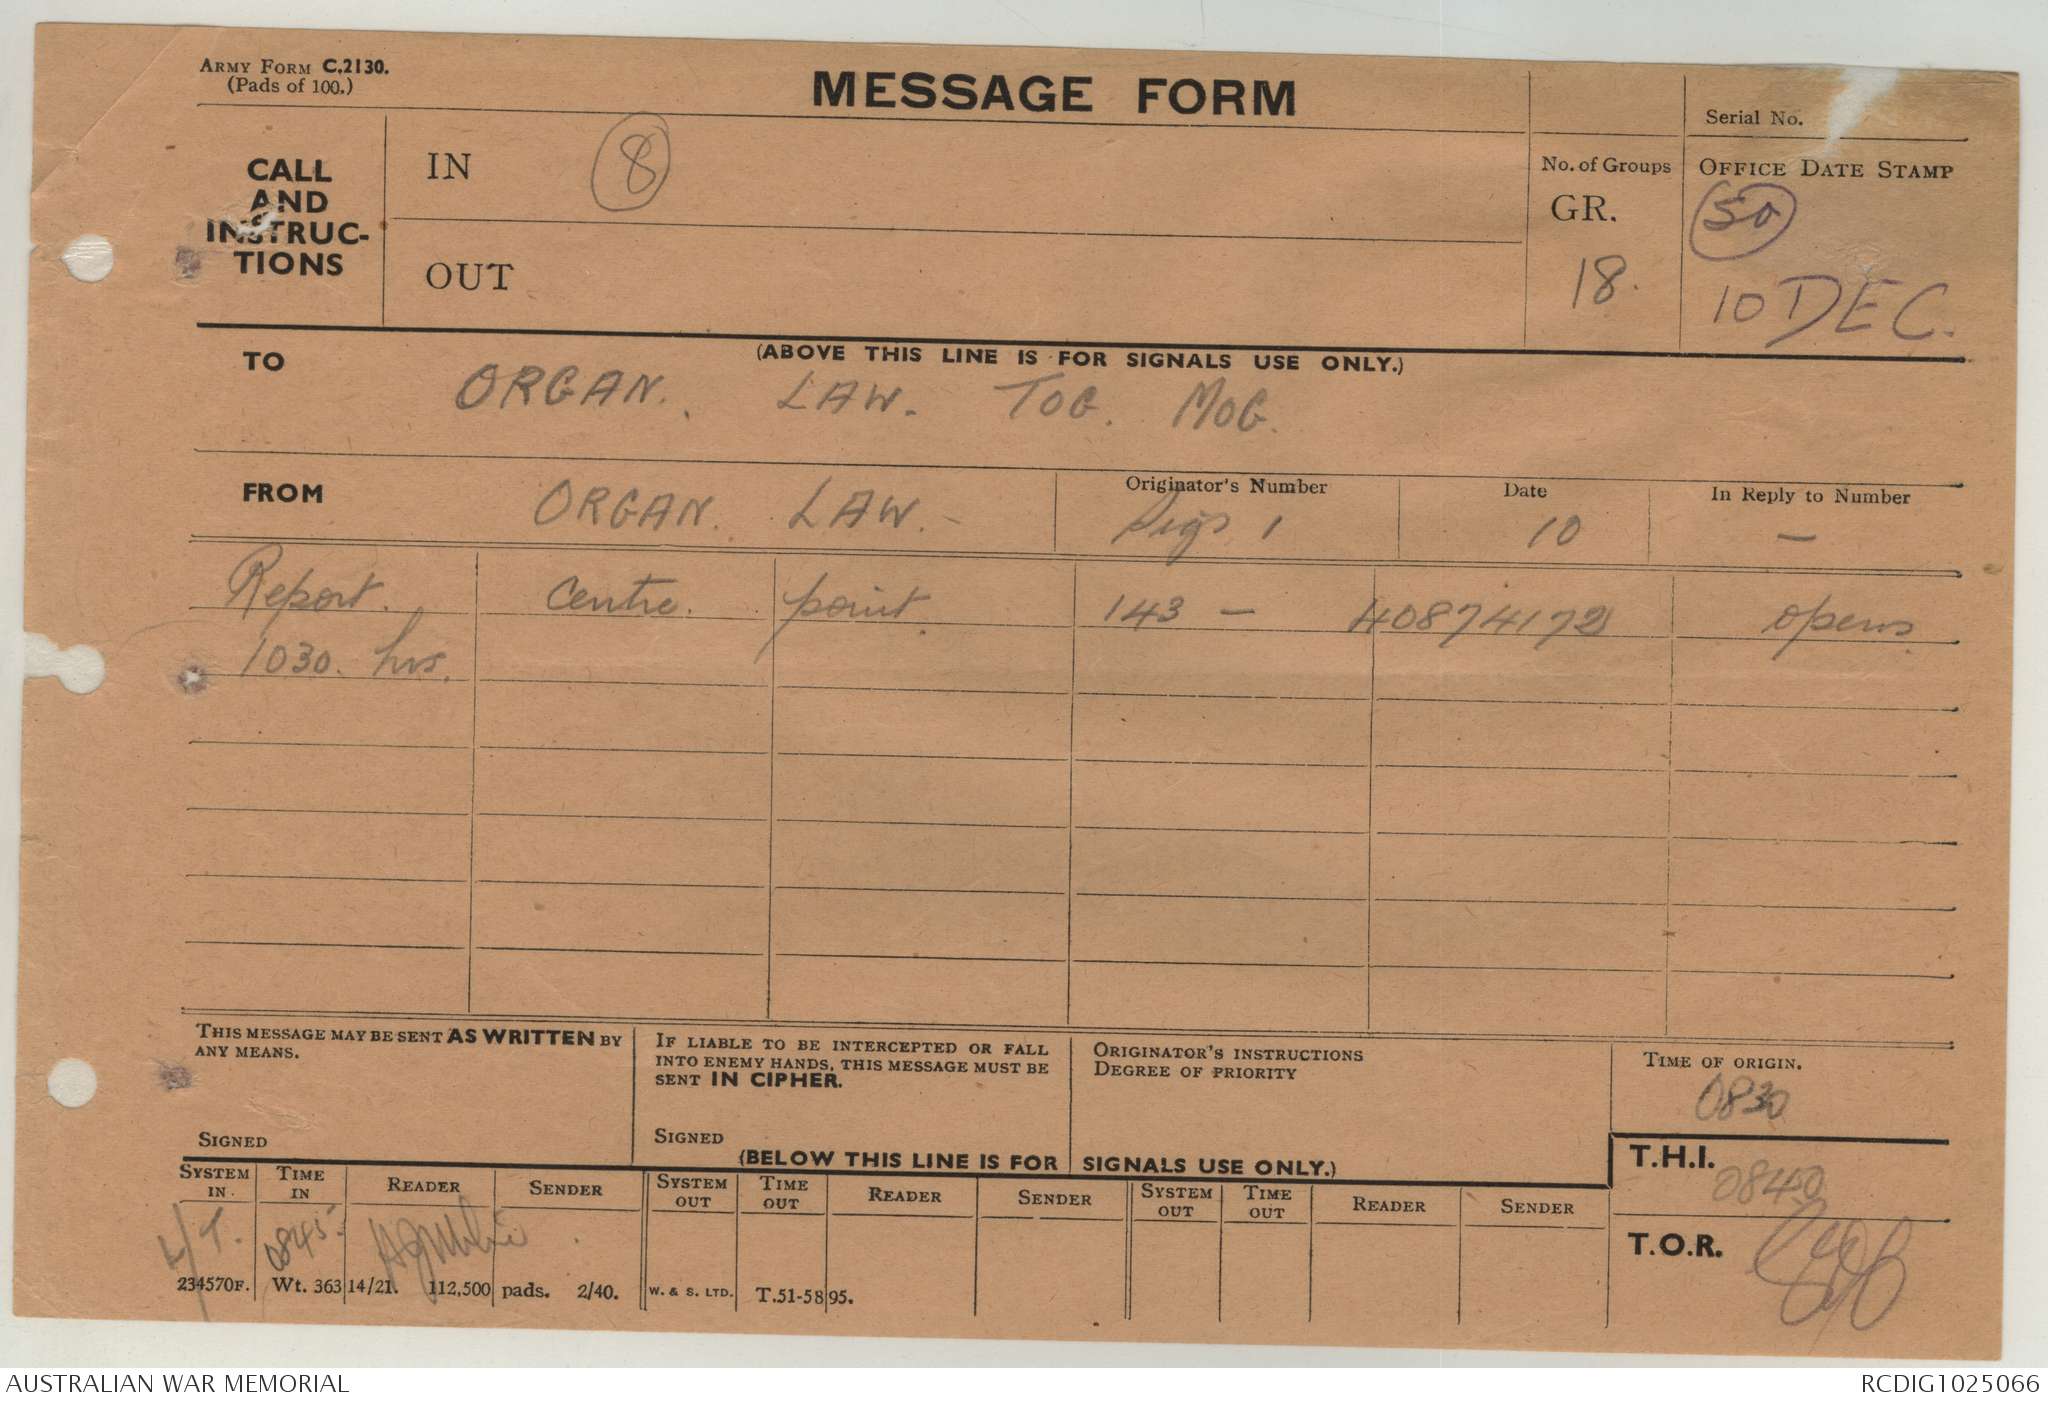 ARMY FORM C.2130.
(Pads of 100.)
MESSAGE FORM
Serial No.
CALL
AND
INSTRUC-
TIONS
IN
8
OUT
No. of Groups
GR.
18.
OFFICE DATE STAMP
50
10 DEC.
(ABOVE THIS LINE IS FOR SIGNALS USE ONLY.)
TO
ORGAN. LAW. TOG. MOG.
FROM
ORGAN. LAW. -
Originator's Number
Sigs 1
Date
10
In Reply to Number
-
Report. centre. point. 143 - 40874172 opens.
1030. hrs.
THIS MESSAGE MAY BE SENT AS WRITTEN BY
ANY MEANS.
SIGNED
IF LIABLE TO BE INTERCEPTED OR FALL
INTO ENEMY HANDS, THIS MESSAGE MUST BE
SENT IN CIPHER.
SIGNED
ORIGINATOR'S INSTRUCTIONS
DEGREE OF PRIORITY
TIME OF ORIGIN.
0830
(BELOW THIS LINE IS FOR SIGNALS USE ONLY.)
T.H.I.
0840
T.O.R.
SYSTEM IN TIME IN READER SENDER SYSTEM OUT TIME OUT READER SENDER SYSTEM OUT TIME OUT READER SENDER
L/T. 0845
234570F. Wt. 36314/21. 112,500 pads. 2/40. W. & S. LTD. T.51-5895.
AUSTRALIAN WAR MEMORIAL
RCDIG1025066